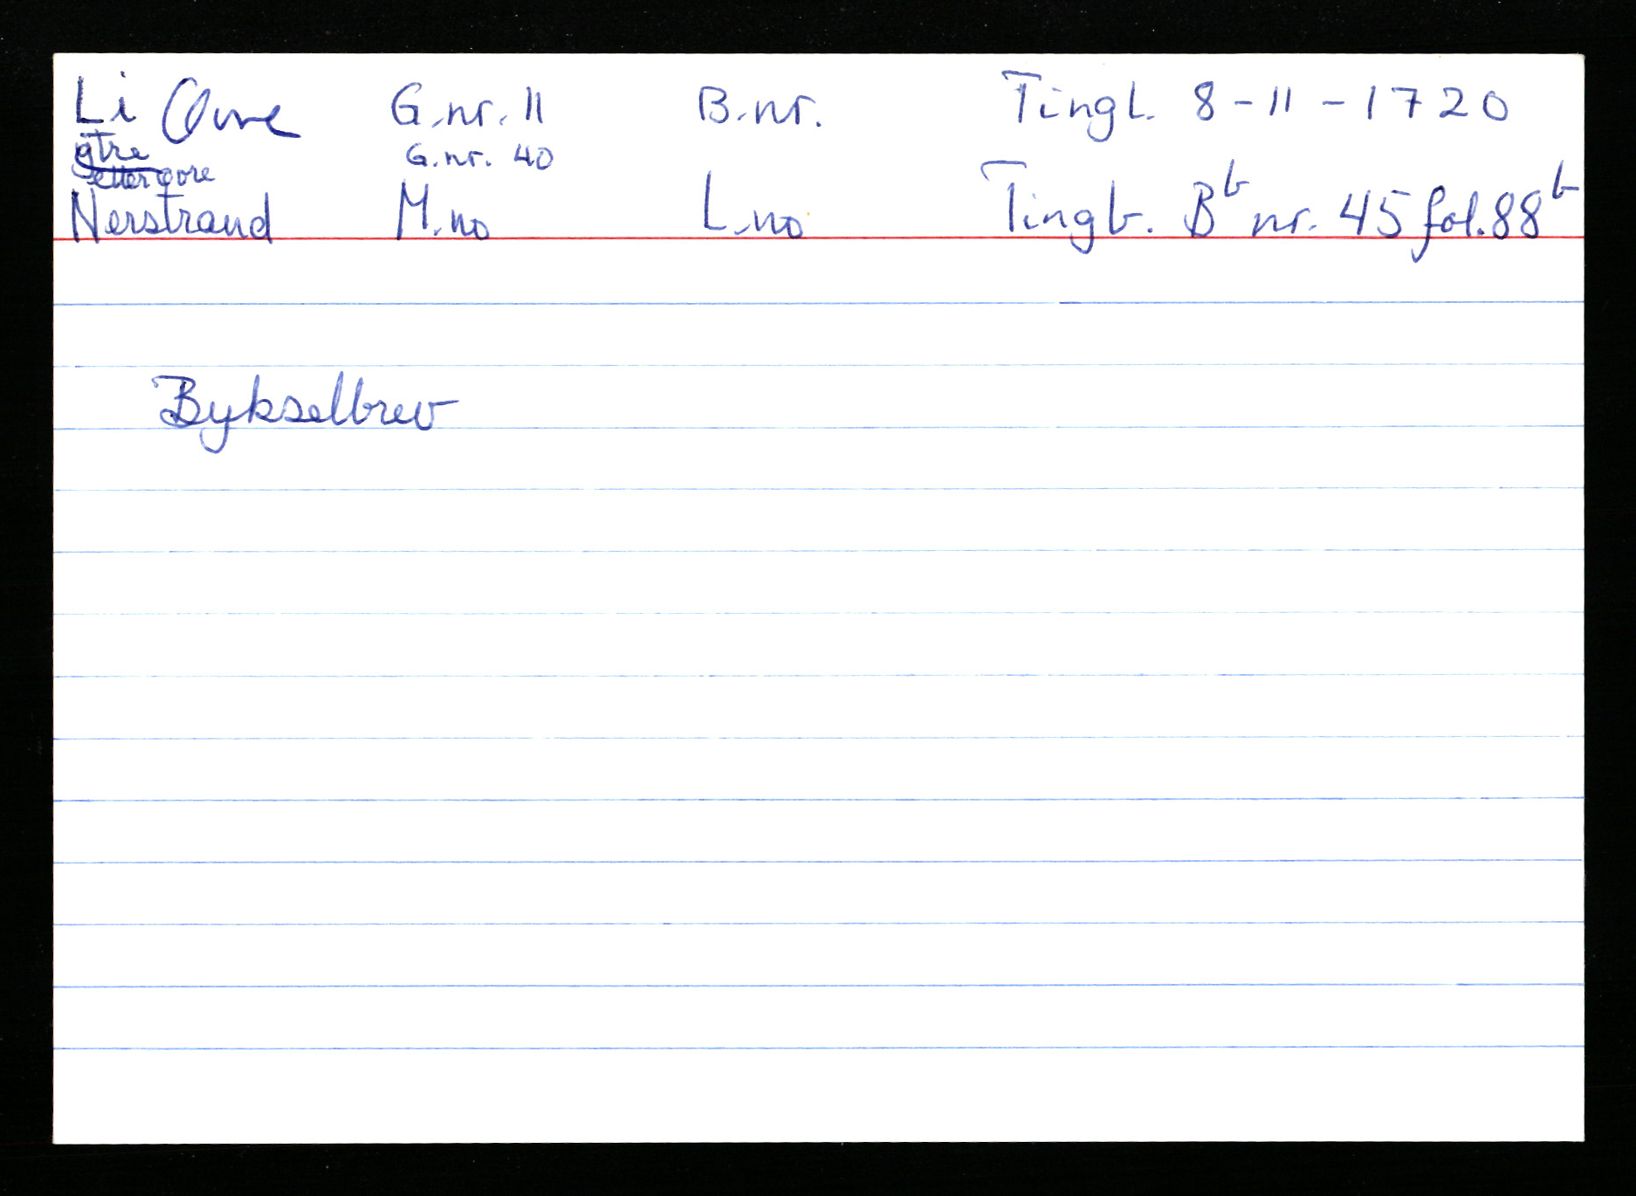 Li Øvre G.nr. 11 B.nr. Tingl. 8-11-1720
ytre G.nr. 40
eller øvre
Nerstrand M.no L.no Tingb. Bb nr. 45 fol. 88b
Bykselbrev